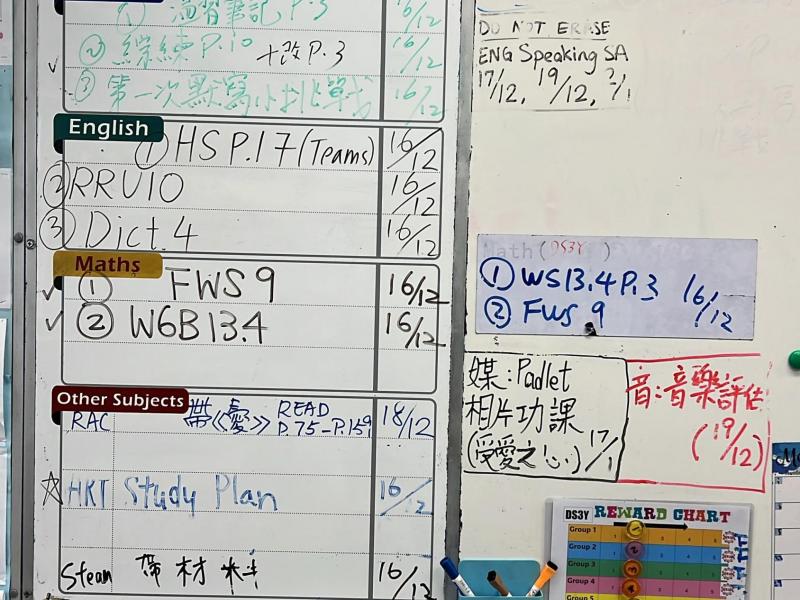 ① 溫習筆記 P.3 16/12
② 綜練 P.10 +改P.3 16/12
③ 第一次默寫小挑戰 16/12
English
① HS P.17 (Teams) 16/12
② RRU10 16/12
③ Dict.4 16/12
Maths
① FWS 9 16/12
② W6B13.4 16/12
Other Subjects
RAC 帶《憂》 READ P.75-P.159 18/12
☆HRT Study Plan 16/12
Steam 帶材料 16/12
DO NOT ERASE
ENG Speaking SA
17/12, 19/12, ?/1
Math (DS3Y)
① WS13.4 P.3 16/12
② FWS 9
媒:Padlet
相片功課
(受愛之心) 17/1
音:音樂評估
(19/12)
DS3Y REWARD CHART
Group 1
Group 2
Group 3
Group 4
Group 5